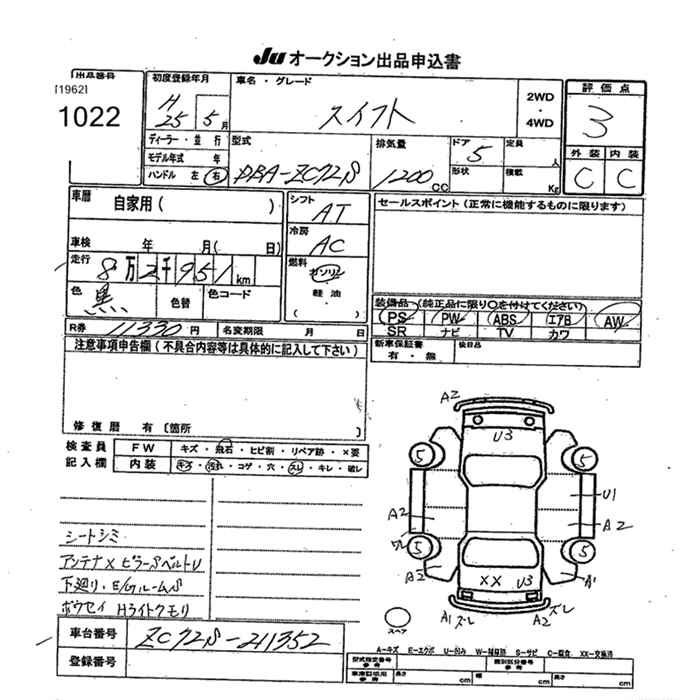 Ju オークション出品申込書
出品番号
[1962]
1022
初度登録年月
H 25 5月
車名・グレード
スイフト
2WD
・
4WD
評価点
3
外装 内装
C C
ディーラー・並行
モデル年式 年
ハンドル 左 右
型式
DBA-ZC72S
排気量
1200 CC
ドア 5
形状
定員 人
積載 Kg
車歴
自家用 ( )
車検 年 月 ( 日)
走行
8万2千951km
色 黒
色替
色コード
シフト
AT
冷房
AC
燃料
ガソリン
軽油
( )
セールスポイント (正常に機能するものに限ります)
装備品 (純正品に限り○を付けてください)
PS PW ABS エアB AW
SR ナビ TV カワ
新車保証書
有・無
後日品
R券 11330 円
名変期限 月 日
注意事項申告欄 (不具合内容等は具体的に記入して下さい)
修復歴 有 〔箇所
検査員
記入欄
FW キズ・飛石・ヒビ割・リペア跡・×要
内装 キズ・汚れ・コゲ・穴・スレ・キレ・破レ
シートシミ
アンテナX ピラーSベルトU
下廻り、E/GルームS
ボウセイ Hライトクモリ
車台番号 ZC72S-211352
登録番号
A2
U3
5 5
U1
A2 A2
5 5
A2 A1
XX U3
A1 ズレ A2 ズレ
スペア
A-キズ E-エクボ U-凹み W-補修跡 S-サビ C-腐食 XX-交換済
型式指定番号
参考
類別区分番号
参考
車庫証明用
参考
長さ cm
幅 cm
高さ cm